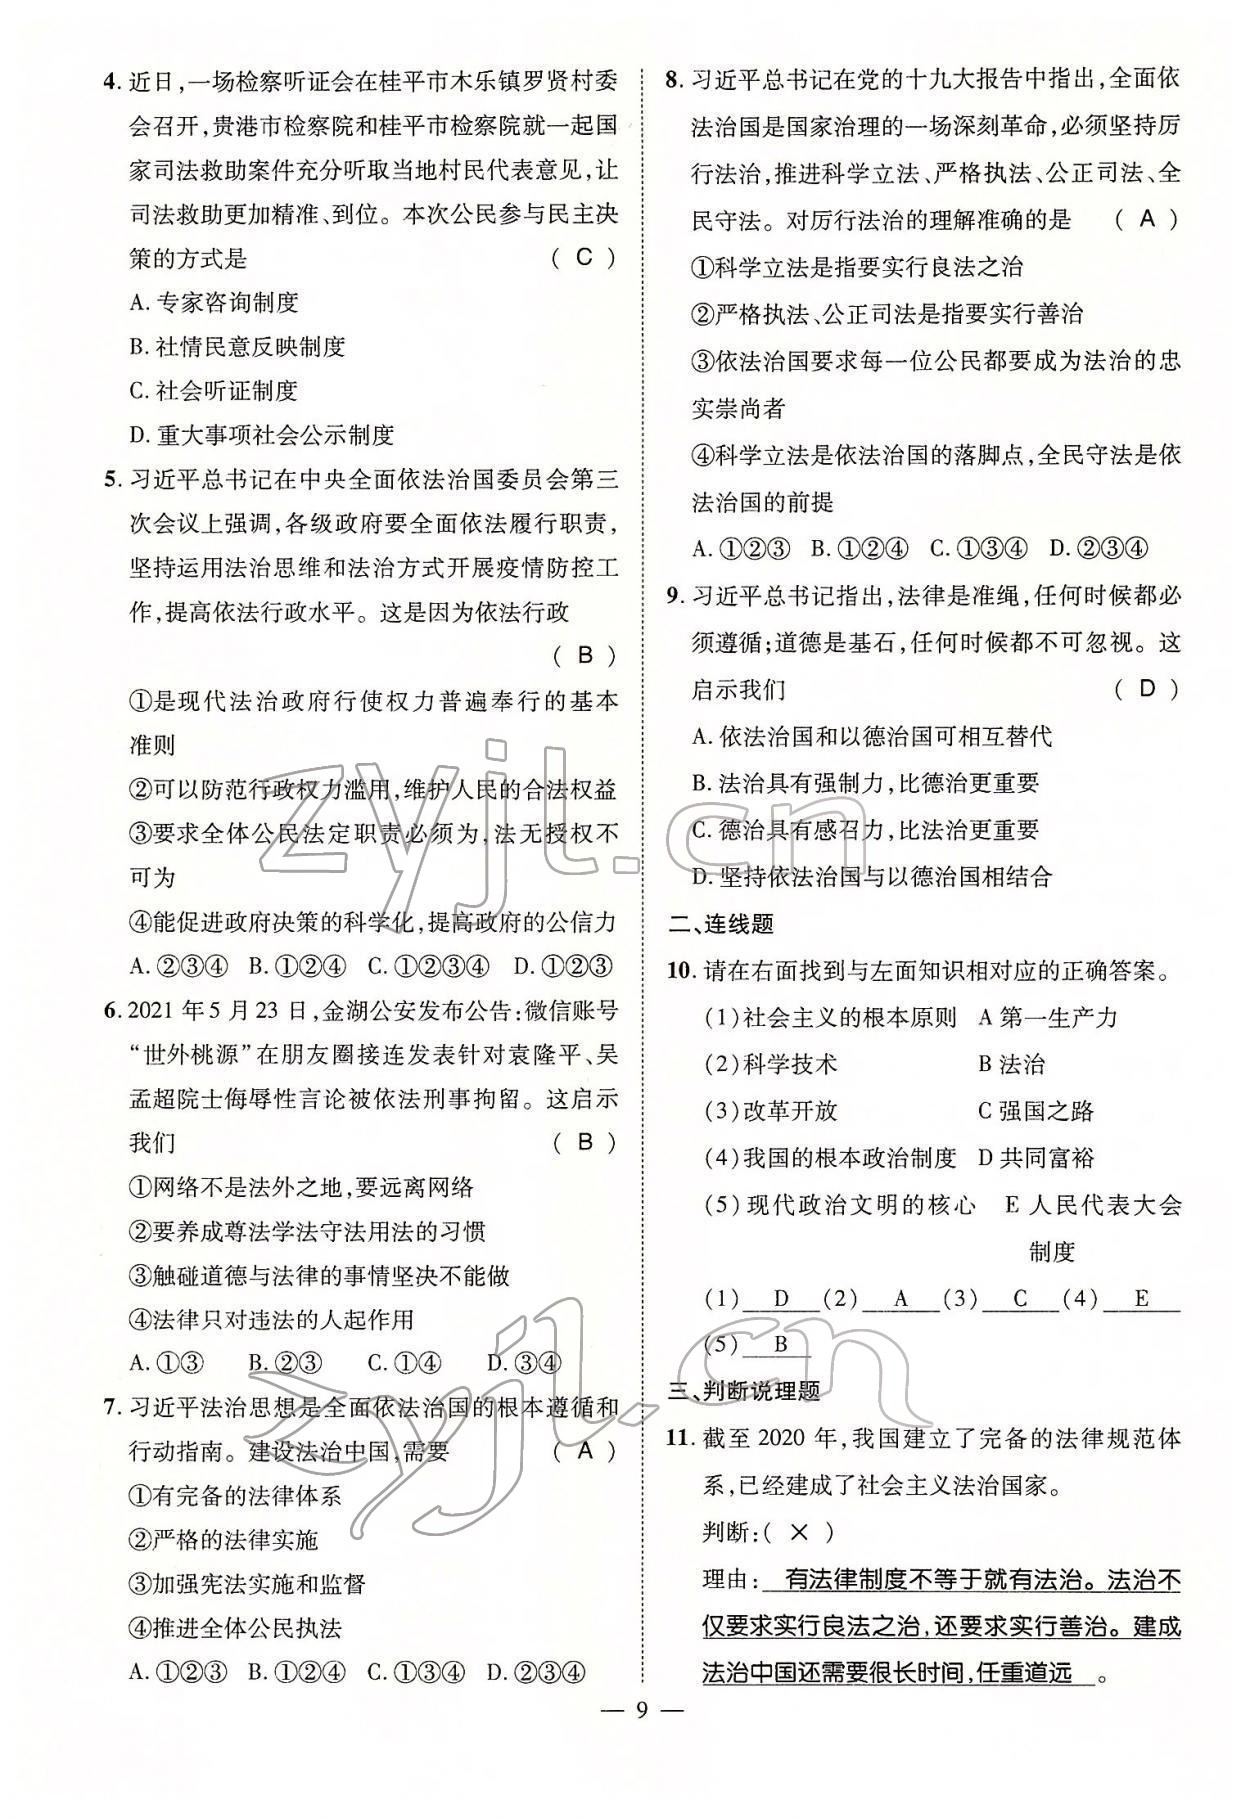 4. 近日,一场检察听证会在桂平市木乐镇罗贤村委
会召开,贵港市检察院和桂平市检察院就一起国
家司法救助案件充分听取当地村民代表意见,让
司法救助更加精准、到位。本次公民参与民主决
策的方式是 ( C )
A. 专家咨询制度
B. 社情民意反映制度
C. 社会听证制度
D. 重大事项社会公示制度
5. 习近平总书记在中央全面依法治国委员会第三
次会议上强调,各级政府要全面依法履行职责,
坚持运用法治思维和法治方式开展疫情防控工
作,提高依法行政水平。这是因为依法行政
( B )
①是现代法治政府行使权力普遍奉行的基本
准则
②可以防范行政权力滥用,维护人民的合法权益
③要求全体公民法定职责必须为,法无授权不
可为
④能促进政府决策的科学化,提高政府的公信力
A. ②③④ B. ①②④ C. ①③④ D. ①②③
6. 2021 年 5 月 23 日,金湖公安发布公告:微信账号
“世外桃源”在朋友圈接连发表针对袁隆平、吴
孟超院士侮辱性言论被依法刑事拘留。这启示
我们 ( B )
①网络不是法外之地,要远离网络
②要养成尊法学法守法用法的习惯
③触碰道德与法律的事情坚决不能做
④法律只对违法的人起作用
A. ①③ B. ②③ C. ①④ D. ③④
7. 习近平法治思想是全面依法治国的根本遵循和
行动指南。建设法治中国,需要 ( A )
①有完备的法律体系
②严格的法律实施
③加强宪法实施和监督
④推进全体公民执法
A. ①②③ B. ①②④ C. ①③④ D. ②③④
8. 习近平总书记在党的十九大报告中指出,全面依
法治国是国家治理的一场深刻革命,必须坚持厉
行法治,推进科学立法、严格执法、公正司法、全
民守法。对厉行法治的理解准确的是 ( A )
①科学立法是指要实行良法之治
②严格执法、公正司法是指要实行善治
③依法治国要求每一位公民都要成为法治的忠
实崇尚者
④科学立法是依法治国的落脚点,全民守法是依
法治国的前提
A. ①②③ B. ①②④ C. ①③④ D. ②③④
9. 习近平总书记指出,法律是准绳,任何时候都必
须遵循;道德是基石,任何时候都不可忽视。这
启示我们 ( D )
A. 依法治国和以德治国可相互替代
B. 法治具有强制力,比德治更重要
C. 德治具有感召力,比法治更重要
D. 坚持依法治国与以德治国相结合
二、连线题
10. 请在右面找到与左面知识相对应的正确答案。
(1)社会主义的根本原则 A 第一生产力
(2)科学技术 B 法治
(3)改革开放 C 强国之路
(4)我国的根本政治制度 D 共同富裕
(5)现代政治文明的核心 E 人民代表大会
制度
(1) D (2) A (3) C (4) E
(5) B
三、判断说理题
11. 截至 2020 年,我国建立了完备的法律规范体
系,已经建成了社会主义法治国家。
判断:( × )
理由: 有法律制度不等于就有法治。法治不
仅要求实行良法之治,还要求实行善治。建成
法治中国还需要很长时间,任重道远 。
— 9 —
zyjl.cn
zyjl.cn